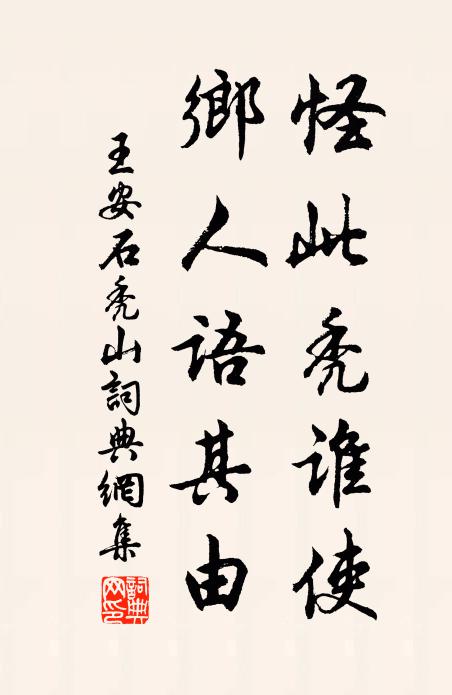 怪此禿誰使
鄉人語其由
王安石禿山詞典網集
詞典網印